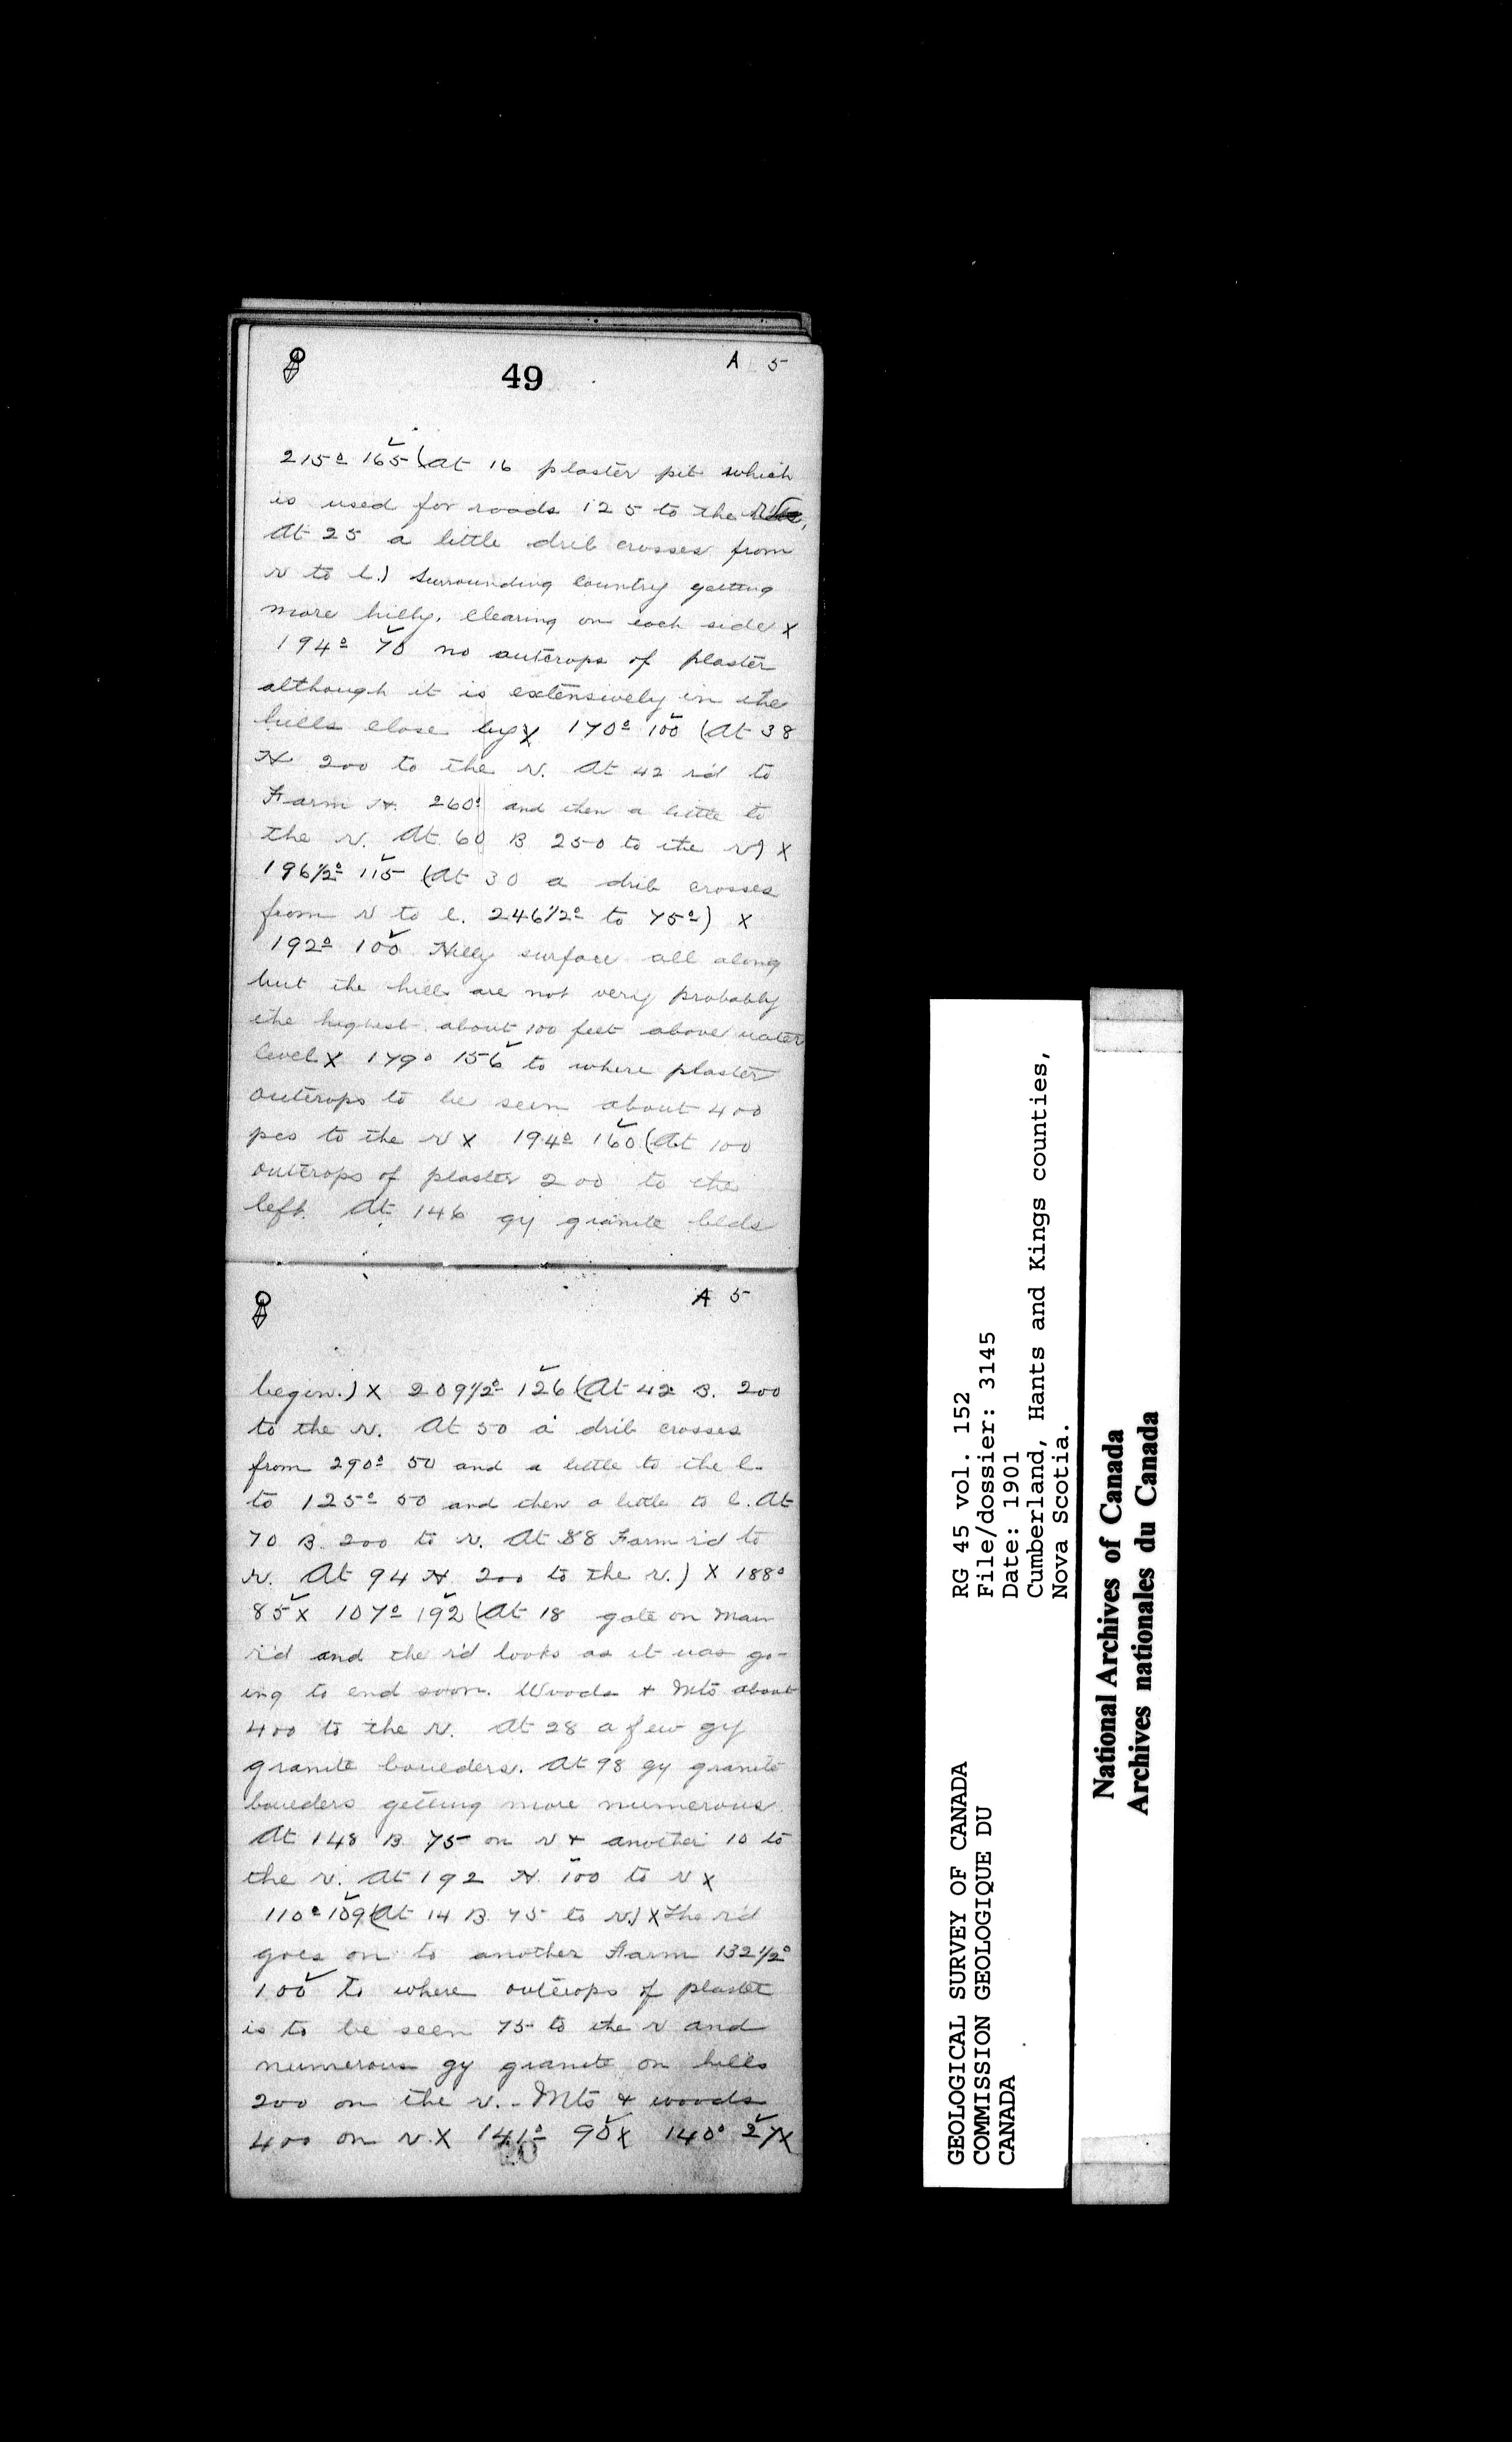 49
A 5
215° 165 (At 16 plaster pit which
is used for roads 125 to the r.
At 25 a little drib crosses from
r to l.) Surrounding Country getting
more hilly. Clearing on each side X
194° 70 no outcrops of plaster
although it is extensively in the
hills close by X 170° 100 (At 38
H 200 to the r. At 42 r'd to
Farm H. 260° and then a little to
the r. At 60 B 250 to the r) X
196 1/2° 115 (At 30 a drib crosses
from r to l. 246 1/2° to 75°) X
192° 100 Hilly surface all along
but the hills are not very probably
the highest about 100 feet above water
level X 179° 156 to where plaster
outcrops to be seen about 400
pcs to the r X 194° 160 (At 100
outcrops of plaster 200 to the
left. At 146 gy granite blds
A 5
begin.) X 209 1/2° 126 (At 42 B. 200
to the r. At 50 a drib crosses
from 290° 50 and a little to the l.
to 125° 50 and then a little to l. At
70 B. 200 to r. At 88 Farm r'd to
r. At 94 H 200 to the r.) X 188°
85 X 107° 192 (At 18 gate on Main
r'd and the r'd looks as it was go-
ing to end soon. Woods + Mts about
400 to the r. At 28 a few gy
granite boulders. At 98 gy granite
boulders getting more numerous.
At 148 B 75 on r + another 10 to
the r. At 192 H. 100 to r X
110° 109 (At 14 B. 75 to r.) X The r'd
goes on to another Farm 132 1/2°
100 to where outcrops of plaster
is to be seen 75 to the r and
numerous gy granite on hills
200 on the r. - Mts + woods
400 on r. X 141° 90 X 140° 27 X
GEOLOGICAL SURVEY OF CANADA
COMMISSION GEOLOGIQUE DU
CANADA
RG 45 vol. 152
File/dossier: 3145
Date: 1901
Cumberland, Hants and Kings counties,
Nova Scotia.
National Archives of Canada
Archives nationales du Canada